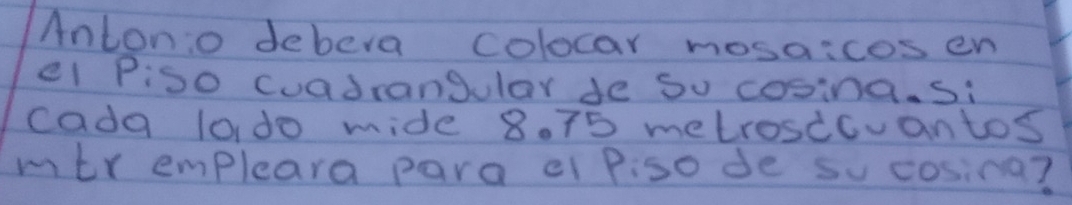 Antonio debera colocar mosaicos en
el Piso cuadrangular de su cosina. Si
cada lado mide 8.75 metros¿cuantos
mtr empleara para el Piso de su cosina?